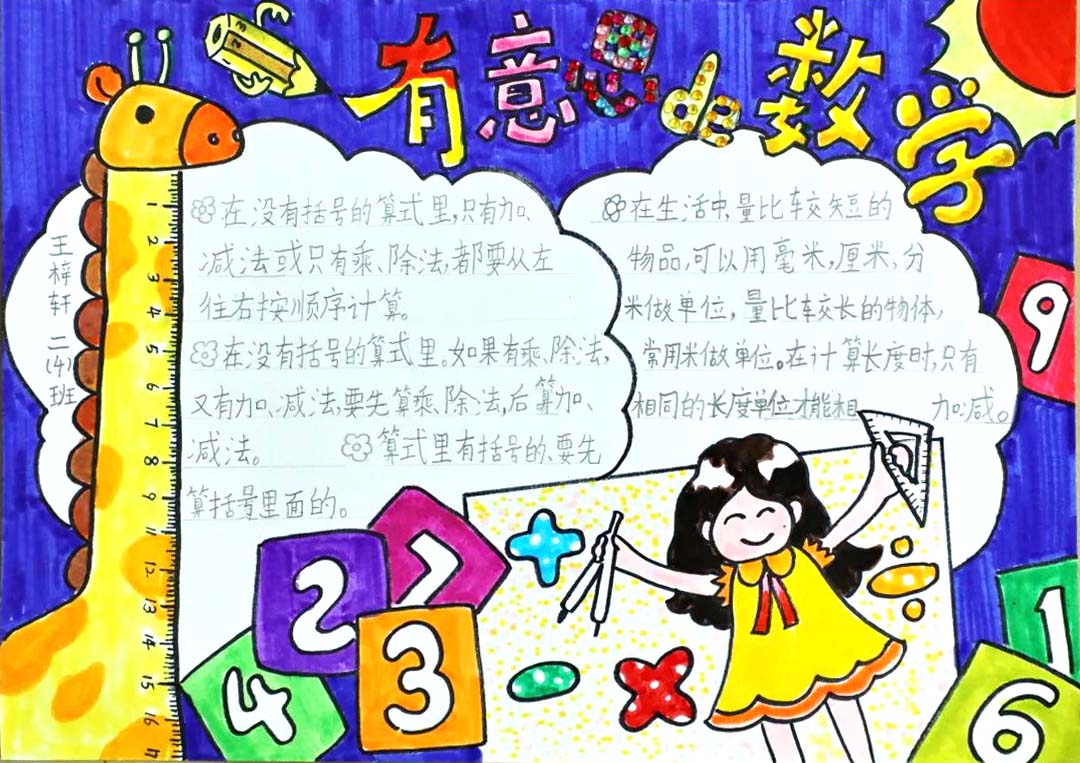 有意思de数学
王梓轩 二(4)班
在没有括号的算式里,只有加、
减法或只有乘、除法,都要从左
往右按顺序计算。
在没有括号的算式里。如果有乘、除法,
又有加、减法,要先算乘、除法,后算加、
减法。 算式里有括号的、要先
算括号里面的。
在生活中,量比较短的
物品,可以用毫米,厘米、分
米做单位,量比较长的物体,
常用米做单位。在计算长度时,只有
相同的长度单位才能相 加减。
1
2
3
4
5
6
7
8
9
11
12
13
14
15
16
17
2
7
3
4
9
1
6